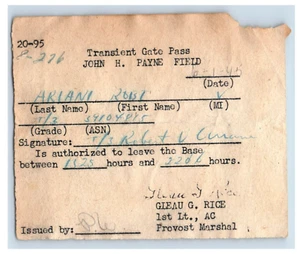 20-95
Transient Gate Pass
JOHN H. PAYNE FIELD
(Date)
ARIANI
(Last Name) (First Name) (MI)
T/3
(Grade) (ASN)
Signature: T/3 Robert V
Is authorized to leave the Base
between hours and 2206 hours.
GLEAU G. RICE
1st Lt., AC
Provost Marshal
Issued by: